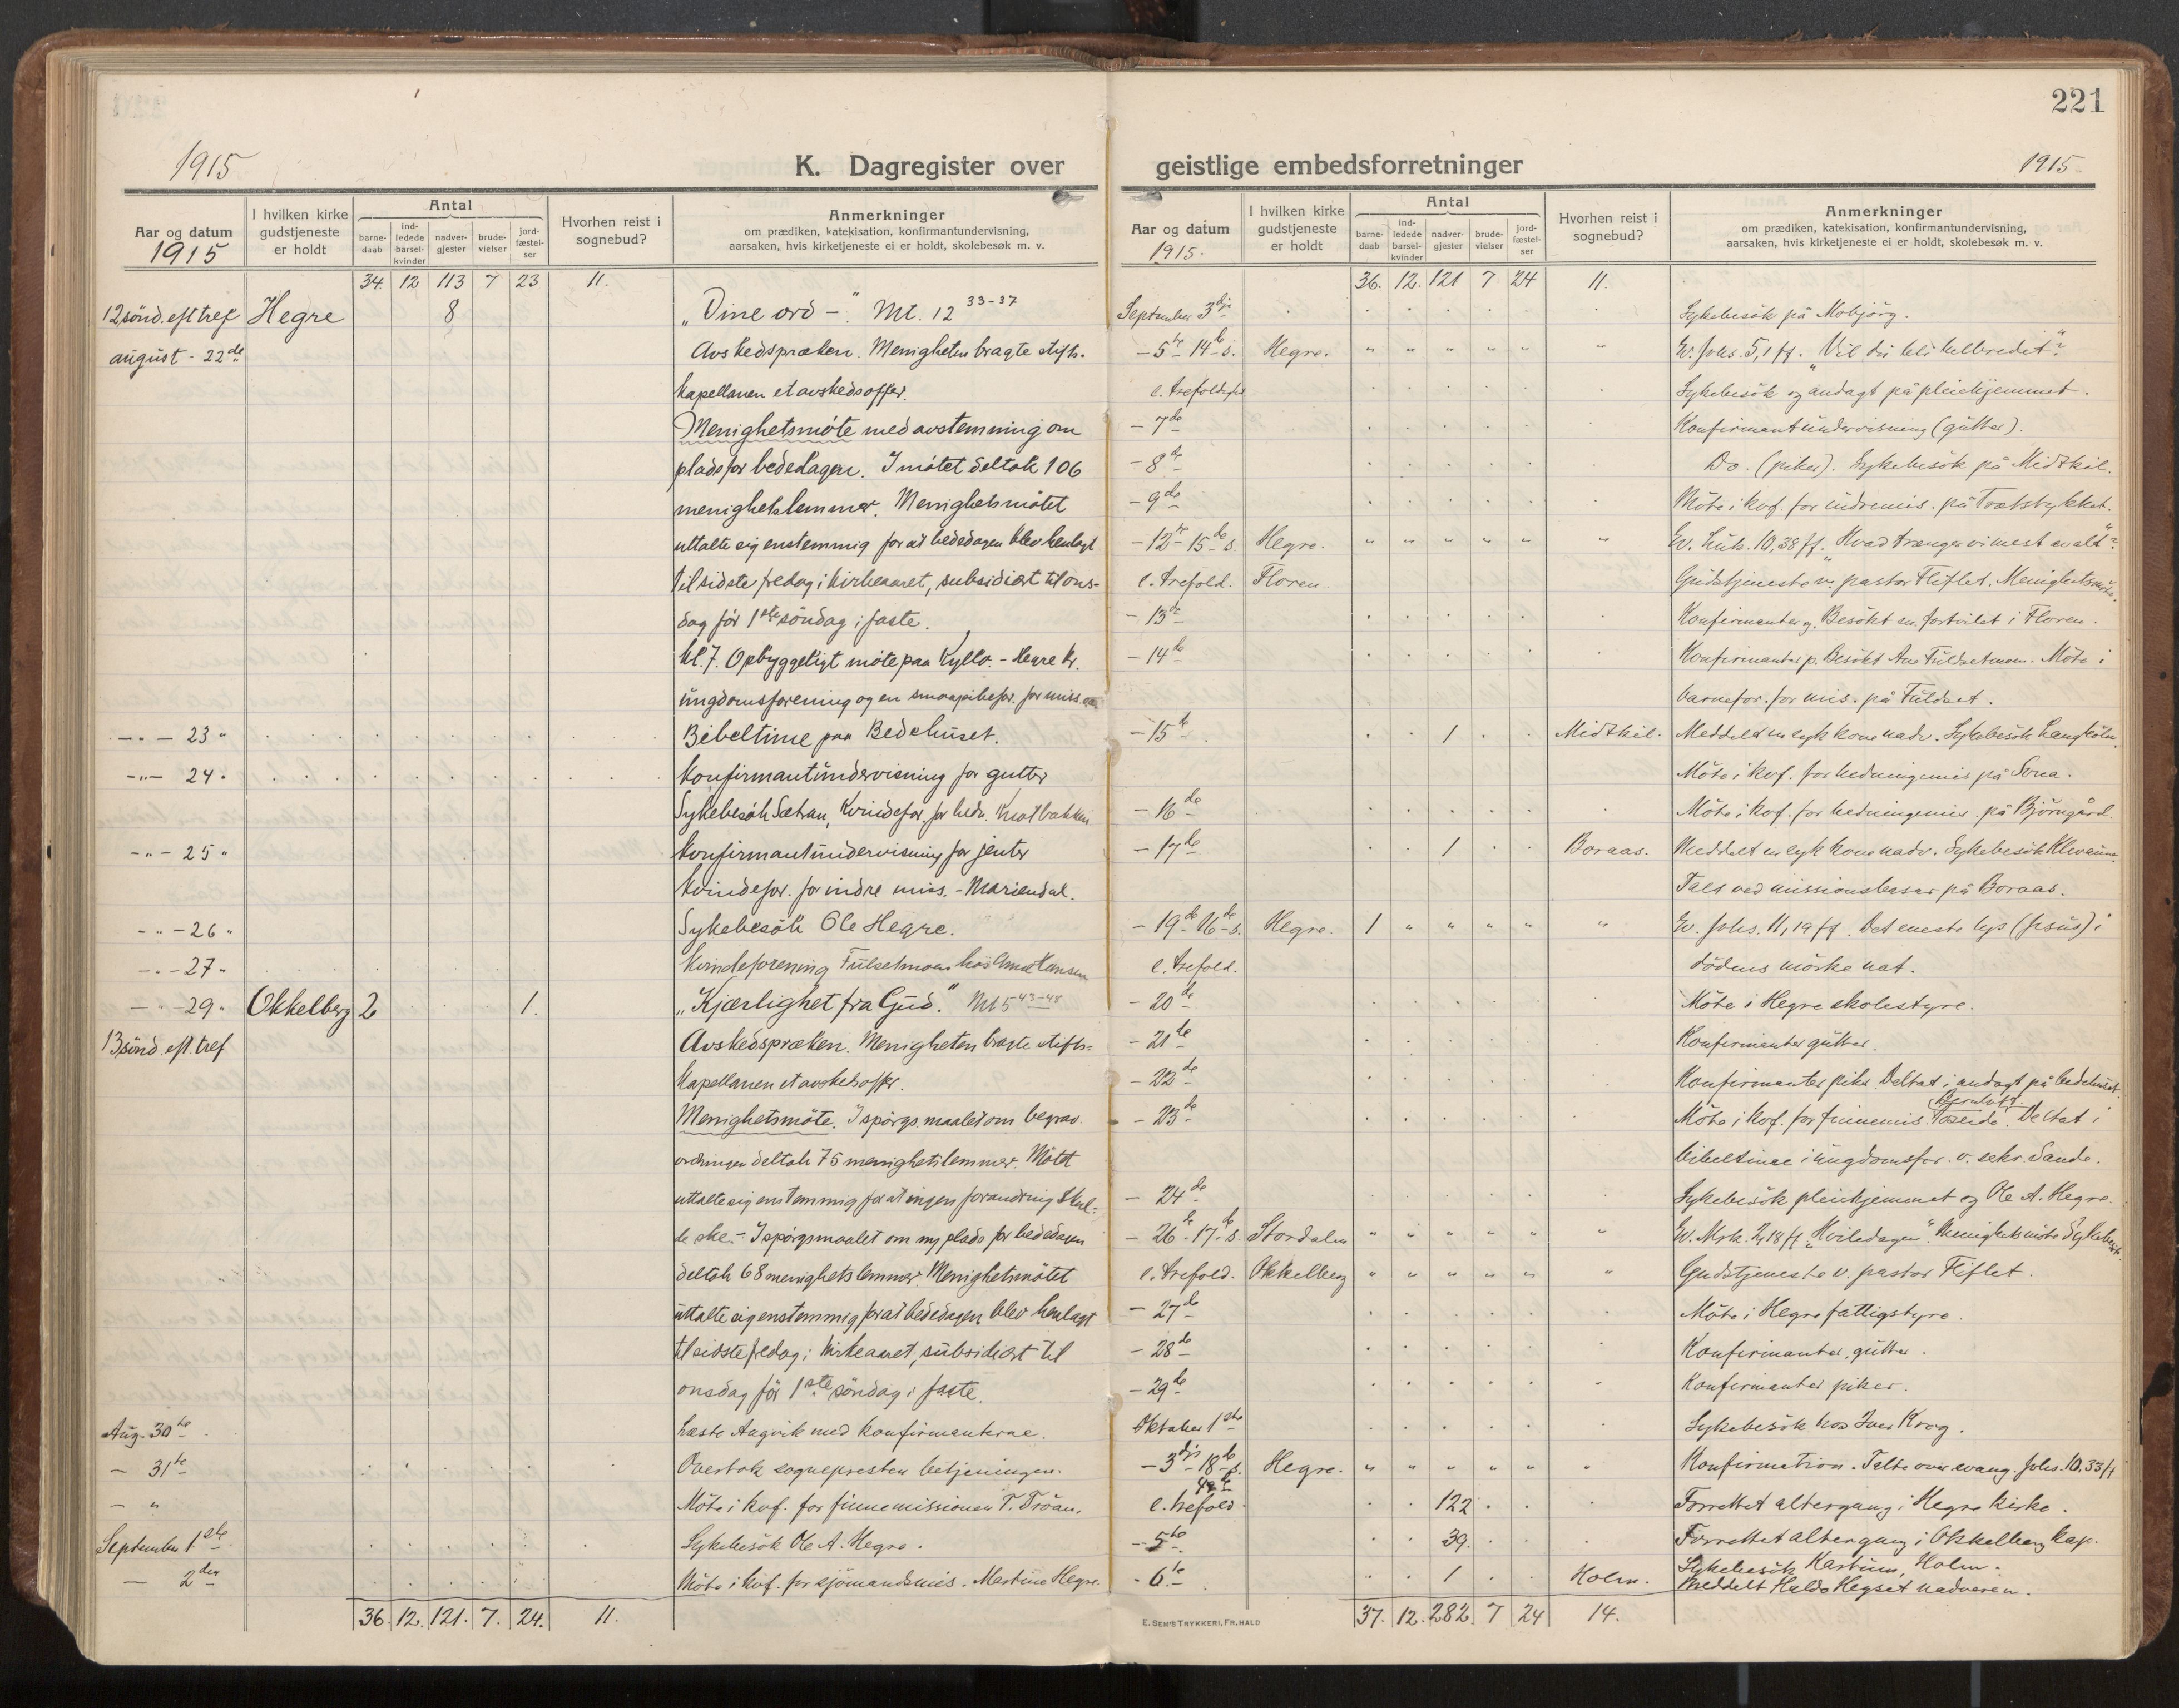 221
1915
K. Dagregister over
Aar og datum
1915
I hvilken kirke gudstjeneste er holdt
Antal
barne-daab
ind-ledede barsel-kvinder
nadver-gjester
brude-vielser
jord-fæstel-ser
Hvorhen reist i sognebud?
Anmerkninger
om prædiken, katekisation, konfirmantundervisning,
aarsaken, hvis kirketjeneste ei er holdt, skolebesøk m. v.
34. 12 113 7 23 11.
12 sönd. eft tref Hegre 8 „Dine ord –". Mt. 12 33-37
august - 22de Avskedspræken. Menigheten bragte stifts-
kapellanen et avskedsoffer.
Menighetsmöte med avstemning om
plads for bededagen. I mötet deltok 106
menighetslemmer. Menighetsmötet
uttalte sig enstemmig for at bededagen blev henlagt
til sidste fredag i kirkeaaret, subsidiært til ons-
dag för 1ste söndag i faste.
kl. 7. Opbyggeligt möte paa Kyllo. - Hegre kr.
ungdomsforening og en smaapikefor. for miss.
-"- 23 " Bibeltime paa Bedehuset.
-"- 24 " Konfirmantundervisning for gutter
Sykebesök Sætran, Kvindefor. for hedn.
-"- 25 " Konfirmantundervisning for jenter
Kvindefor. for indre miss. - Mariendal.
-"- 26 " Sykebesök Ole Hegre.
-"- 27 " Kvindeforening Fulsetmoen hos
-"- 29 " Okkelberg 2 1. „Kjærlighet fra Gud." Mt 5 43-48
13 sönd. eft. tref Avskedspræken. Menigheten bragte stifts-
kapellanen et avskedsoffer.
Menighetsmöte. I spörgsmaalet om begrav.
ordningen deltok 75 menighetslemmer. Mötet
uttalte sig enstemmig for at ingen forandring skul-
de ske. - I spörgsmaalet om ny plads for bededagen
deltok 68 menighetslemmer. Menighetsmötet
uttalte sig enstemmig for at bededagen blev henlagt
til sidste fredag i kirkeaaret, subsidiært til
onsdag för 1ste söndag i faste.
Aug. 30te Læste Aagvik med konfirmanterne.
- 31te Overtok sognepresten betjeningen.
- " Möte i kvf. for finnemissionen T. Tröan.
September 1ste Sykebesök Ole A. Hegre.
- 2den Möte i kvf. for sjömandsmis. Martine Hegre.
36. 12. 121. 7. 24. 11.
geistlige embedsforretninger
1915
Aar og datum
1915.
I hvilken kirke gudstjeneste er holdt
Antal
barne-daab
ind-ledede barsel-kvinder
nadver-gjester
brude-vielser
jord-fæstel-ser
Hvorhen reist i sognebud?
Anmerkninger
om prædiken, katekisation, konfirmantundervisning,
aarsaken, hvis kirketjeneste ei er holdt, skolebesøk m. v.
36. 12. 121 7 24 11.
September 3dje Sykebesök på Mobjörg.
- 5te 14de s. Hegre. " " " " " " Ev. Johs. 5, 1 ff. „Vil du bli helbredet?"
e. trefoldighet Sykebesök og andagt på pleiehjemmet.
- 7de Konfirmantundervisning (gutter).
- 8de Do. (piker). Sykebesök på Midtkil.
- 9de Möte i kvf. for indremis. på
- 12te 15de s. Hegre. " " " " " " Ev. Luk. 10, 38 ff. „Hvad trænger vi mest av alt?"
e. trefold. Floren Gudstjeneste v. pastor Fliflet. Menighetsmöte.
- 13de Konfirmanter g. Besökt en fortvilet i Floren.
- 14de Konfirmanter p. Besökt Ane Fuldsetmoen. Möte i
barnefor. for mis. på Fuldset.
- 15de 1 Midtkil. Meddelt en syk kone nadv. Sykebesök
Möte i kvf. for hedningemis på Sona.
- 16de Möte i kvf. for hedningemis. på Björngård.
- 17de 1 Boraas. Meddelt en syk kone nadv. Sykebesök
Tale ved missionsbasar på Boraas.
- 19de 16de s. Hegre. 1 " " " " " Ev. Johs. 11, 19 ff. Det eneste lys (Jesus) i
e. trefold. dödens mörke nat.
- 20de Möte i Hegre skolestyre.
- 21de Konfirmanter gutter.
- 22de Konfirmanter piker. Deltat i andagt på bedehuset.
- 23de Möte i kvf. for finnemis. Deltat i
bibeltime i ungdomsfor. v. sekr. Sande.
- 24de Sykebesök pleiehjemmet og Ole A. Hegre.
- 26de 17de s. Stordalen " " " " " " Ev. Mrk. 2, 18 ff. „Hviledagen". Menighetsmöte Sykebesök
e. trefold. Okkelberg " " " " " " Gudstjeneste v. pastor Fliflet.
- 27de Möte i Hegre fattigstyre.
- 28de Konfirmanter, gutter.
- 29de Konfirmanter piker.
Oktober 1ste Sykebesök hos Iver Krog.
- 3dje 18de s. Hegre. " " " " " " Konfirmation. Talte over evang. Johs. 10, 33 ff
e. trefold 122 Forrettet altergang i Hegre kirke.
- 5te 39. Forrettet altergang i Okkelberg kap.
- 6te 1 Holm. Sykebesök Kartum, Holm.
Meddelt Haldo Hegset nadveren.
E. SEM'S TRYKKERI, FR.HALD
37. 12. 282 7 24 14.